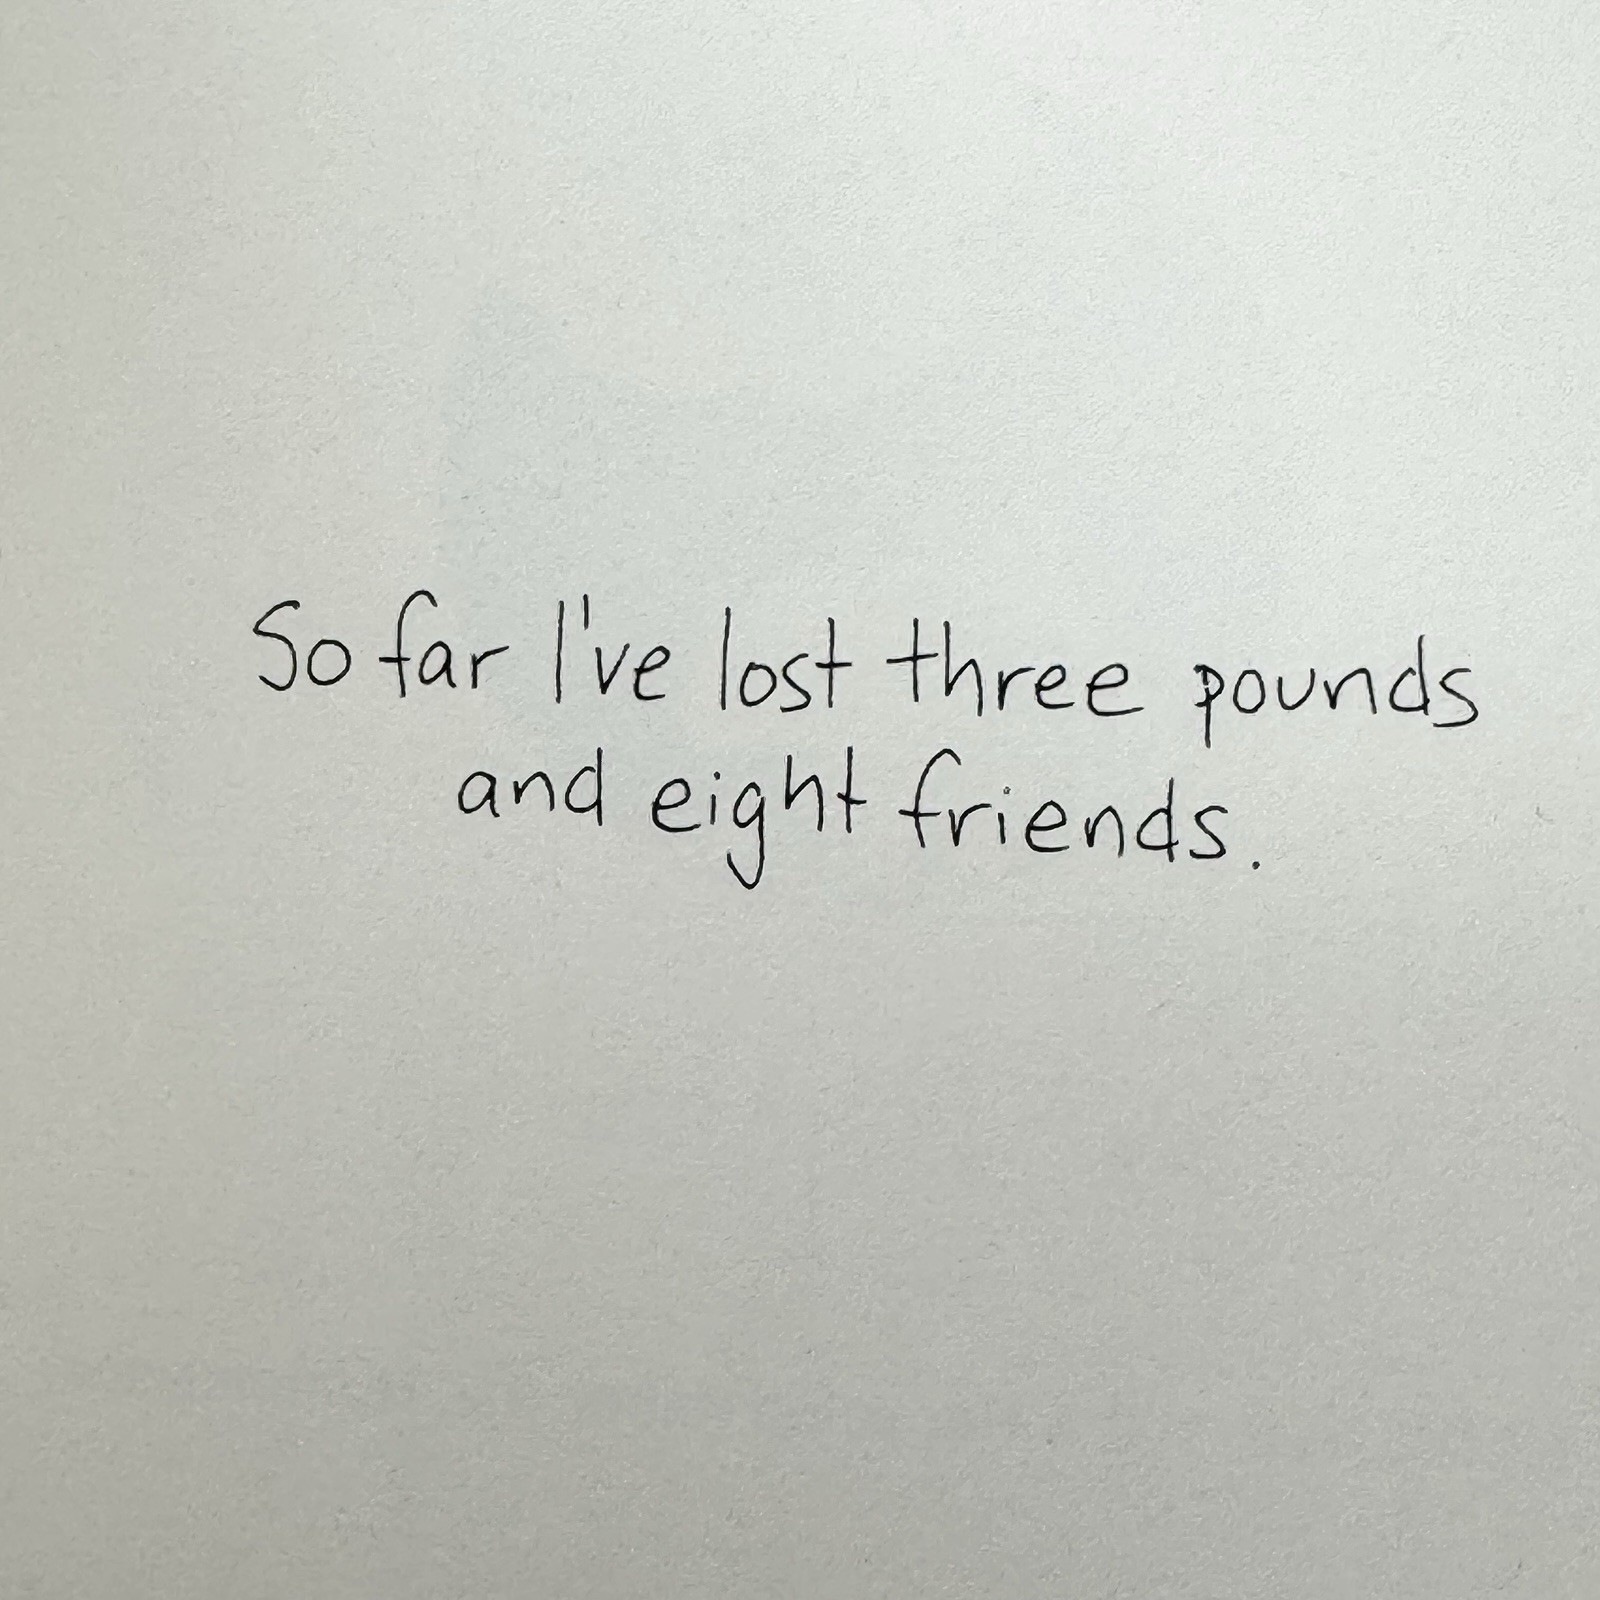 So far I've lost three pounds
and eight friends.